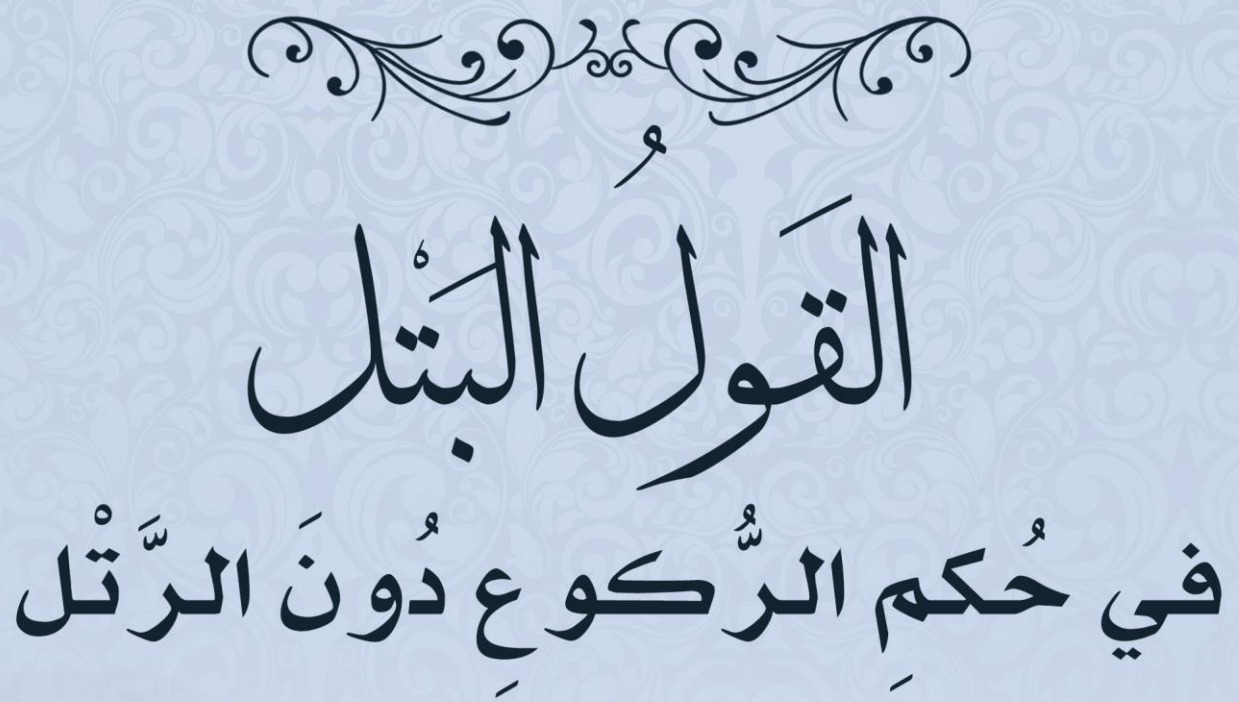 القَولُ البَتْل
في حُكمِ الرُّكوعِ دُونَ الرَّتْل